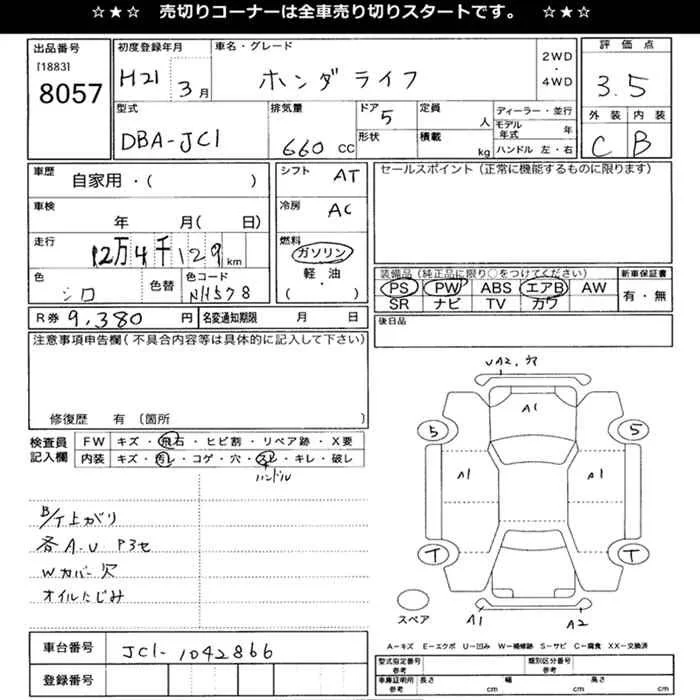 ☆★☆ 売切りコーナーは全車売り切りスタートです。 ☆★☆
出品番号 初度登録年月 車名・グレード 2WD・4WD 評価点
[1883] 8057 H21 3月 ホンダライフ 3.5
型式 排気量 ドア 5 定員 人 ディーラー・並行 外装 内装
DBA-JC1 660 CC 形状 積載 kg モデル年式 年 C B
ハンドル 左・右
車歴 自家用・( ) シフト AT セールスポイント (正常に機能するものに限ります)
車検 年 月( 日) 冷房 AC
走行 12万4千129 km 燃料 ガソリン
軽・油
( ・ )
色 シロ 色替 色コード NH578
装備品 (純正品に限り○をつけてください) 新車保証書
PS PW ABS エアB AW 有・無
SR ナビ TV カワ
R券 9,380 円 名変通知期限 月 日 後日品
注意事項申告欄 (不具合内容等は具体的に記入して下さい)
修復歴 有 〔箇所
検査員記入欄 FW キズ・飛石・ヒビ割・リペア跡・X要
内装 キズ・汚レ・コゲ・穴・スレ・キレ・破レ
ハンドル
B/T上がり
各A.U P3セ
Wカバー穴
オイルにじみ
UA2.穴
A1
5 5
A1 A1
T T
スペア
A1 A2
A−キズ E−エクボ U−凹み W−補修跡 S−サビ C−腐食 XX−交換済
車台番号 JC1-1042866
登録番号
型式指定番号 参考 類別区分番号 参考
車庫証明所 参考 長さ cm 幅 cm 高さ cm